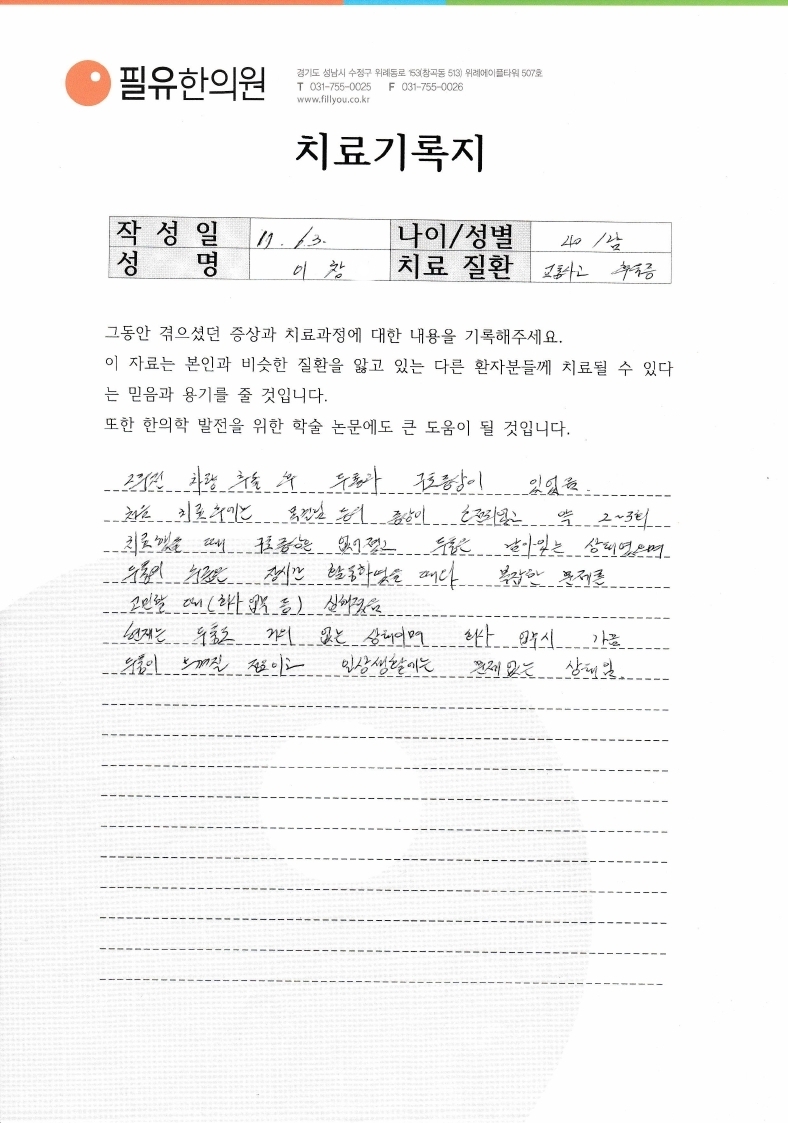 필유한의원
경기도 성남시 수정구 위례동로 153(창곡동 513) 위례에이플타워 507호
T 031-755-0025 F 031-755-0026
www.fillyou.co.kr
치료기록지
작 성 일 나이/성별 40 / 남
성 명 이 창 치료 질환 교통사고 후유증
그동안 겪으셨던 증상과 치료과정에 대한 내용을 기록해주세요.
이 자료는 본인과 비슷한 질환을 앓고 있는 다른 환자분들께 치료될 수 있다
는 믿음과 용기를 줄 것입니다.
또한 한의학 발전을 위한 학술 논문에도 큰 도움이 될 것입니다.
2주전 차량 추돌 후 두통과 구토증상이 있었음.
처음 치료 후에는 증상이 약 2~3회
치료했을 때 구토증상은 없어졌고 두통은 남아있는 상태였으며
두통의 장시간 활동하였을 때다 복잡한 문제를
고민할 때(회사 업무 등) 심해졌음
현재는 두통도 거의 없는 상태이며 회사 업무시 가끔
두통이 느껴질 정도이고 일상생활에는 문제없는 상태임.